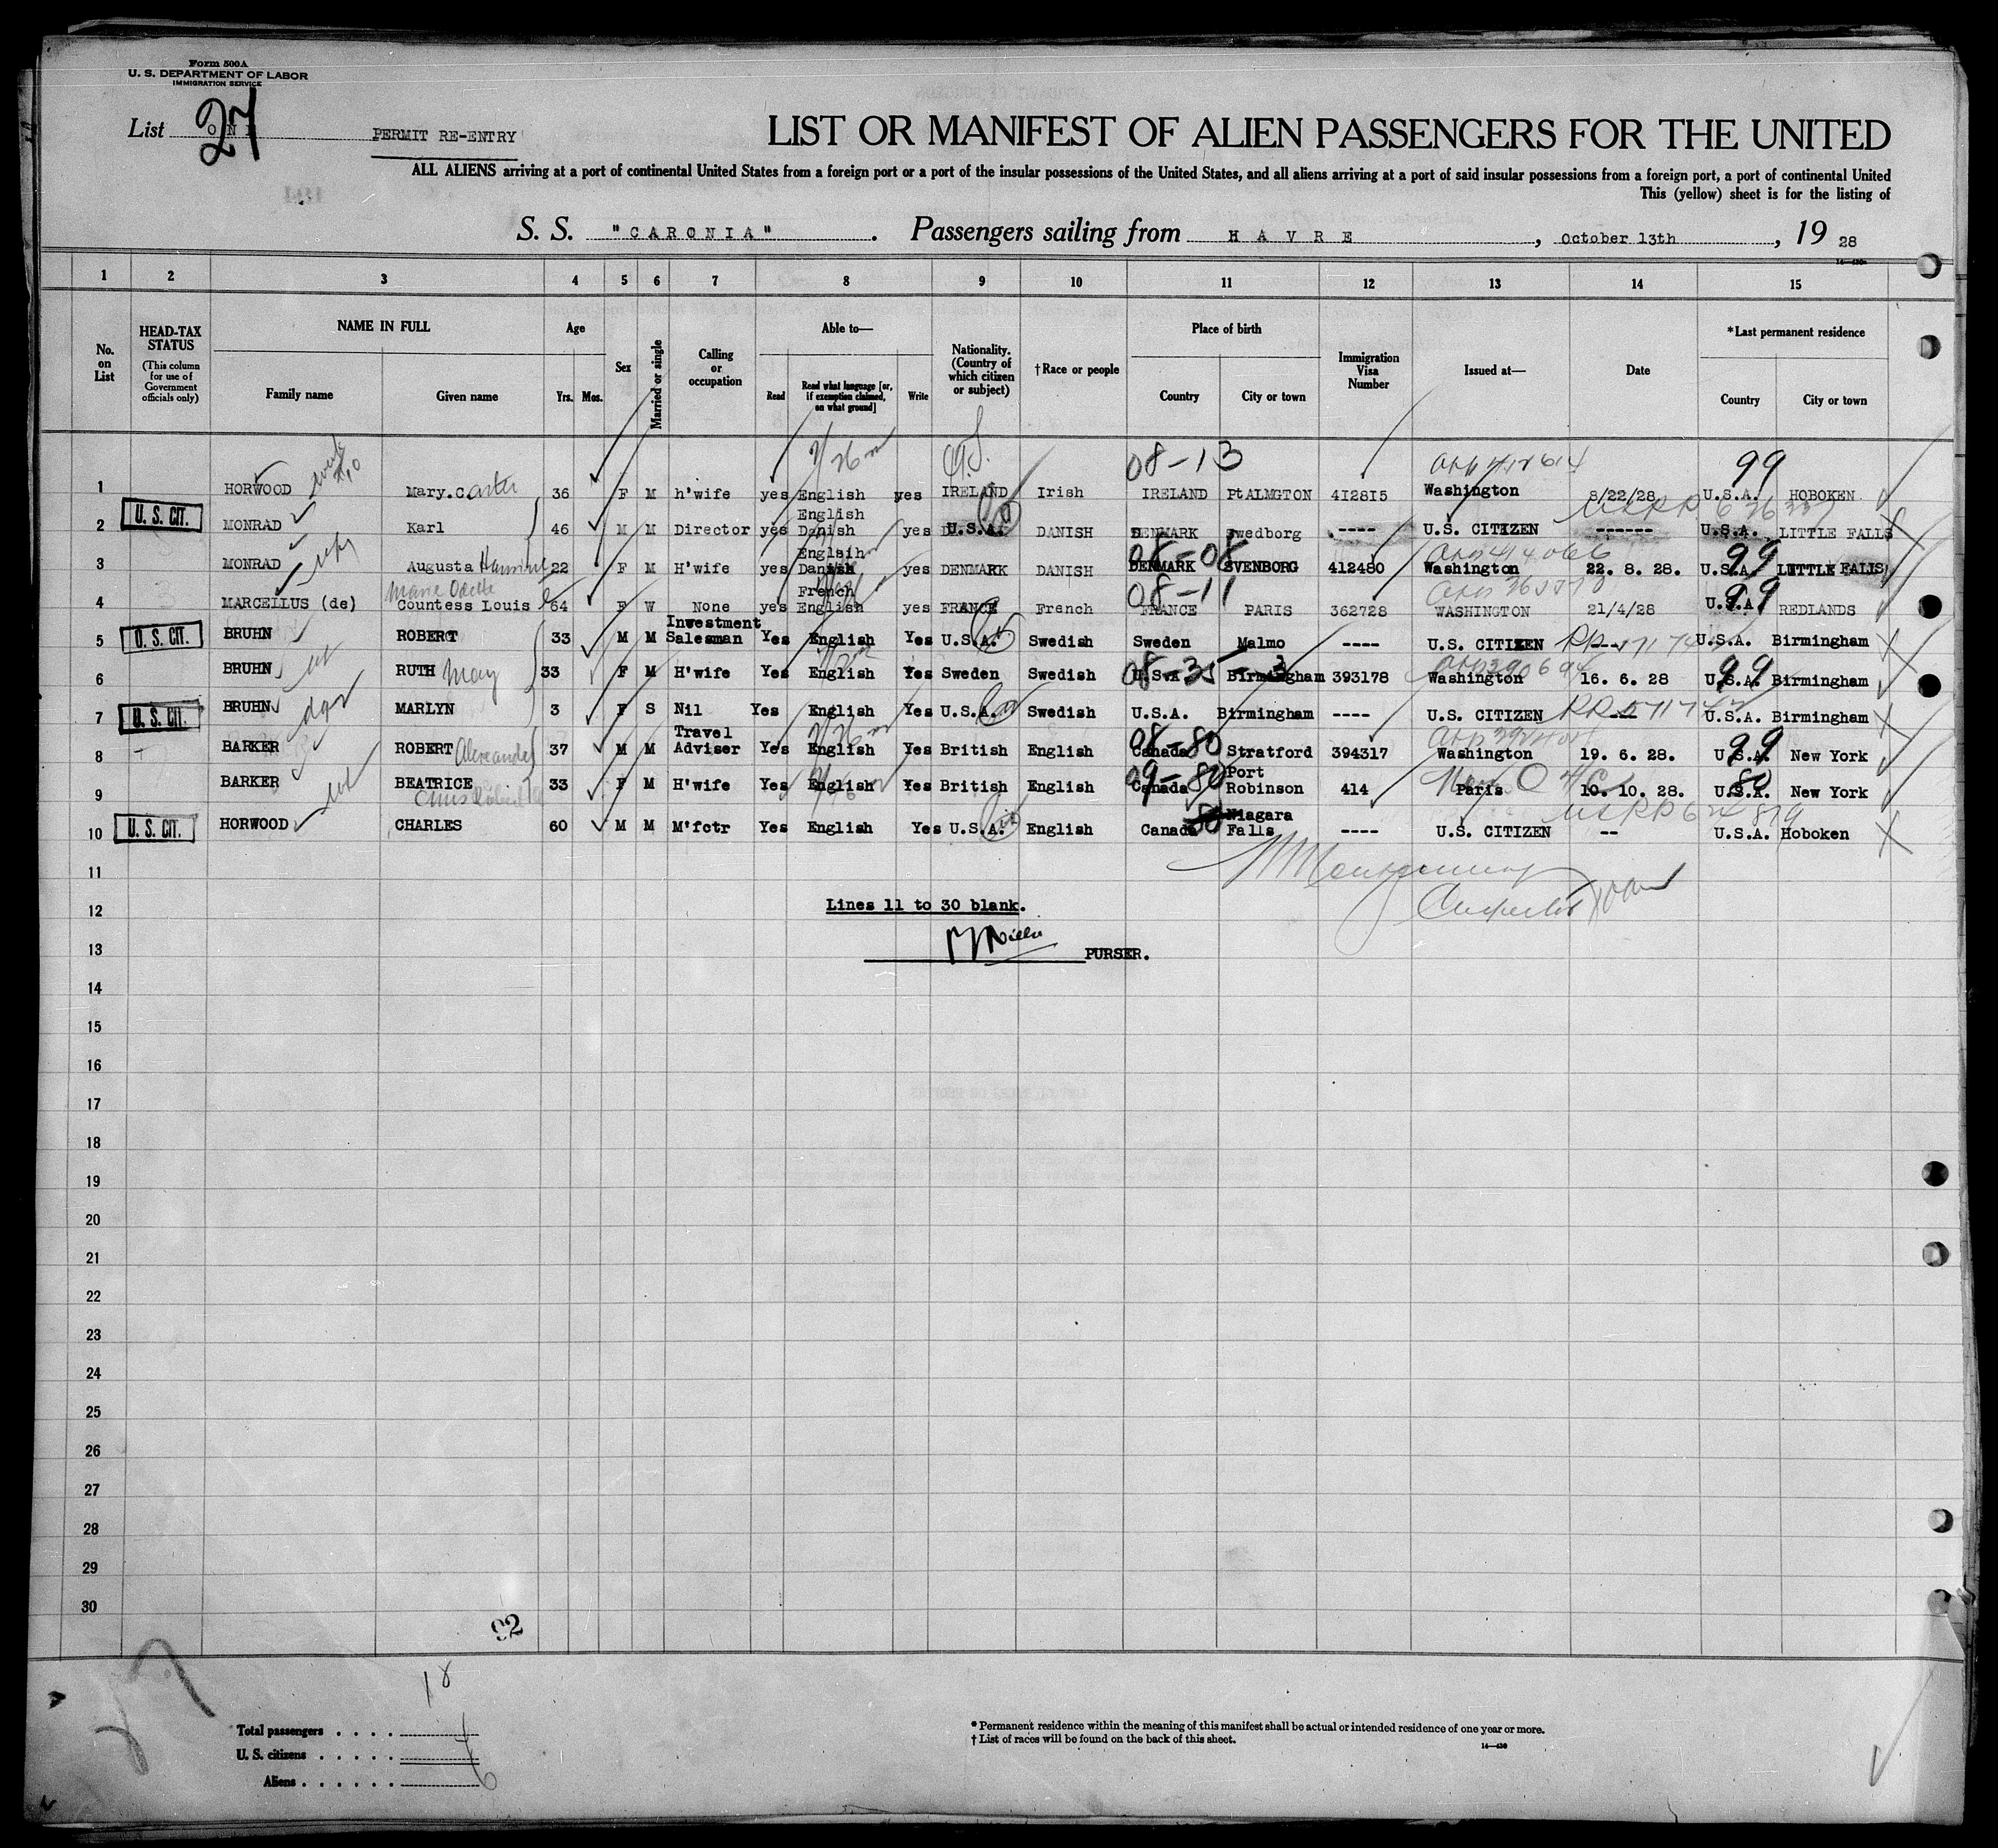 Form 500A
U. S. DEPARTMENT OF LABOR
IMMIGRATION SERVICE
List 27
PERMIT RE-ENTRY
LIST OR MANIFEST OF ALIEN PASSENGERS FOR THE UNITED
ALL ALIENS arriving at a port of continental United States from a foreign port or a port of the insular possessions of the United States, and all aliens arriving at a port of said insular possessions from a foreign port, a port of continental United
This (yellow) sheet is for the listing of
S. S. "CARONIA". Passengers sailing from HAVRE, October 13th, 19 28
1 2 3 4 5 6 7 8 9 10 11 12 13 14 15
No. on List
HEAD-TAX STATUS (This column for use of Government officials only)
NAME IN FULL Family name Given name
Age Yrs. Mos.
Sex
Married or single
Calling or occupation
Able to— Read Read what language [or, if exemption claimed, on what ground] Write
Nationality. (Country of which citizen or subject)
†Race or people
Place of birth Country City or town
Immigration Visa Number
Issued at—
Date
*Last permanent residence Country City or town
08-13 99
1 HORWOOD Mary.Carter 36 F M h'wife yes English yes IRELAND Irish IRELAND PtALMGTON 412815 Washington 8/22/28 U.S.A. HOBOKEN
U. S. CIT.
2 MONRAD Karl 46 M M Director yes English Danish yes U.S.A. DANISH DENMARK Swedborg ---- U.S. CITIZEN ------ U.S.A. LITTLE FALLS
08-08 99
3 MONRAD Augusta 22 F M H'wife yes Englsih Danish yes DENMARK DANISH DENMARK SVENBORG 412480 Washington 22. 8. 28. U.S.A. LITTLE FALLS
Marie Odette 08-11 99
4 MARCELLUS (de) Countess Louis 64 F W None yes French English yes FRANCE French FRANCE PARIS 362728 WASHINGTON 21/4/28 U.S.A. REDLANDS
U. S. CIT.
5 BRUHN ROBERT 33 M M Investment Salesman Yes English Yes U.S.A. Swedish Sweden Malmo ---- U.S. CITIZEN U.S.A. Birmingham
6 BRUHN RUTH May 33 F M H'wife Yes English Yes Sweden Swedish U.S.A. Birmingham 393178 Washington 16. 6. 28 U.S.A. Birmingham
U. S. CIT.
7 BRUHN MARLYN 3 F S Nil Yes English Yes U.S.A. Swedish U.S.A. Birmingham ---- U.S. CITIZEN U.S.A. Birmingham
08-80 99
8 BARKER ROBERT Alexander 37 M M Travel Adviser Yes English Yes British English Canada Stratford 394317 Washington 19. 6. 28. U.S.A. New York
09-80 80
9 BARKER BEATRICE 33 F M H'wife Yes English Yes British English Canada Port Robinson 414 Paris 10. 10. 28. U.S.A. New York
U. S. CIT.
10 HORWOOD CHARLES 60 M M M'fctr Yes English Yes U.S.A. English Canada Niagara Falls ---- U.S. CITIZEN -- U.S.A. Hoboken
11
12 Lines 11 to 30 blank.
13 PURSER.
14
15
16
17
18
19
20
21
22
23
24
25
26
27
28
29
30
92
Total passengers . . . .
U. S. citizens . . . . .
Aliens . . . . . .
* Permanent residence within the meaning of this manifest shall be actual or intended residence of one year or more.
† List of races will be found on the back of this sheet.
14—430